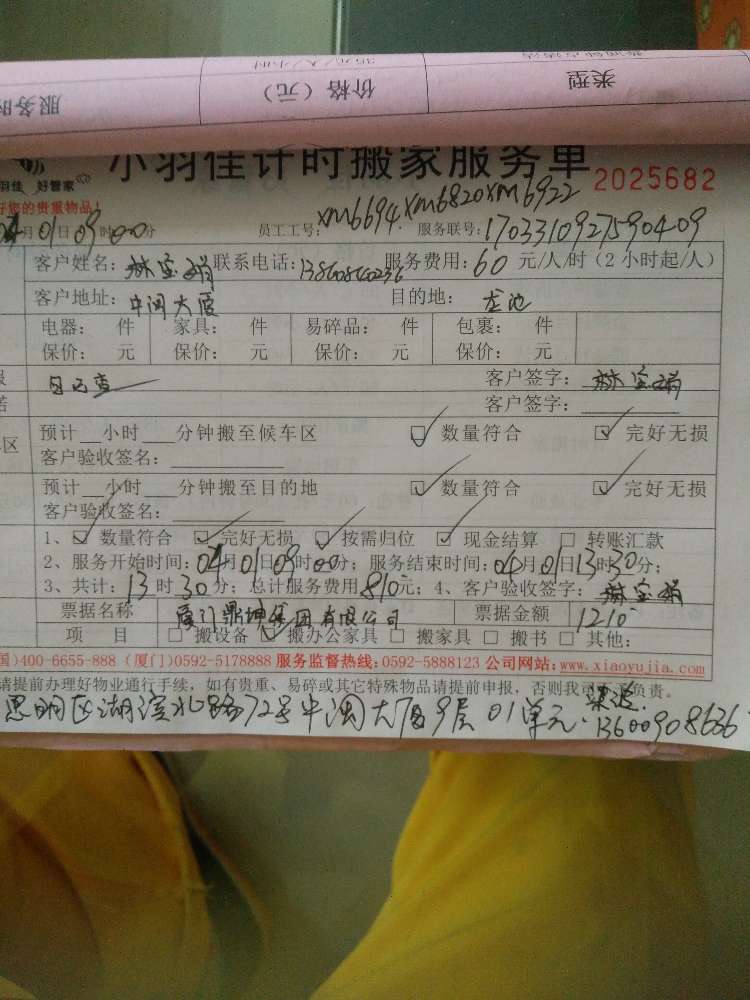 类型 价格（元） 服务时
小羽佳计时搬家服务单 2025682
羽佳 好管家
好您的贵重物品！
04月01日09时00分 员工工号：XM6694XM6820XM6922 服务联号：1703310927590409
客户姓名：林宝娟 联系电话： 服务费用：60元/人/时（2小时起/人）
客户地址：中闽大厦 目的地：龙池
电器： 件 家具： 件 易碎品： 件 包裹： 件
保价： 元 保价： 元 保价： 元 保价： 元
客户签字：林宝娟
诺 客户签字：
预计__小时___分钟搬至候车区 ☑ 数量符合 ☑ 完好无损
车区 客户验收签名：
预计__小时___分钟搬至目的地 ☑ 数量符合 ☑ 完好无损
客户验收签名：
1、☑ 数量符合 ☑ 完好无损 ☑ 按需归位 ☑ 现金结算 □ 转账汇款
2、服务开始时间：04月01日09时00分；服务结束时间：04月01日13时30分；
3、共计：13时30分；总计服务费用810元；4、客户验收签字：林宝娟
票据名称 厦门鼎坤集团有限公司 票据金额 1210
项 目 □ 搬设备 ☑ 搬办公家具 □ 搬家具 □ 搬书 □ 其他：
国)400-6655-888 (厦门)0592-5178888 服务监督热线:0592-5888123 公司网站:www.xiaoyujia.com
请提前办理好物业通行手续，如有贵重、易碎或其它特殊物品请提前申报，否则我司不承负责。
思明区湖滨北路72号中闽大厦9层01单元. 13600908636